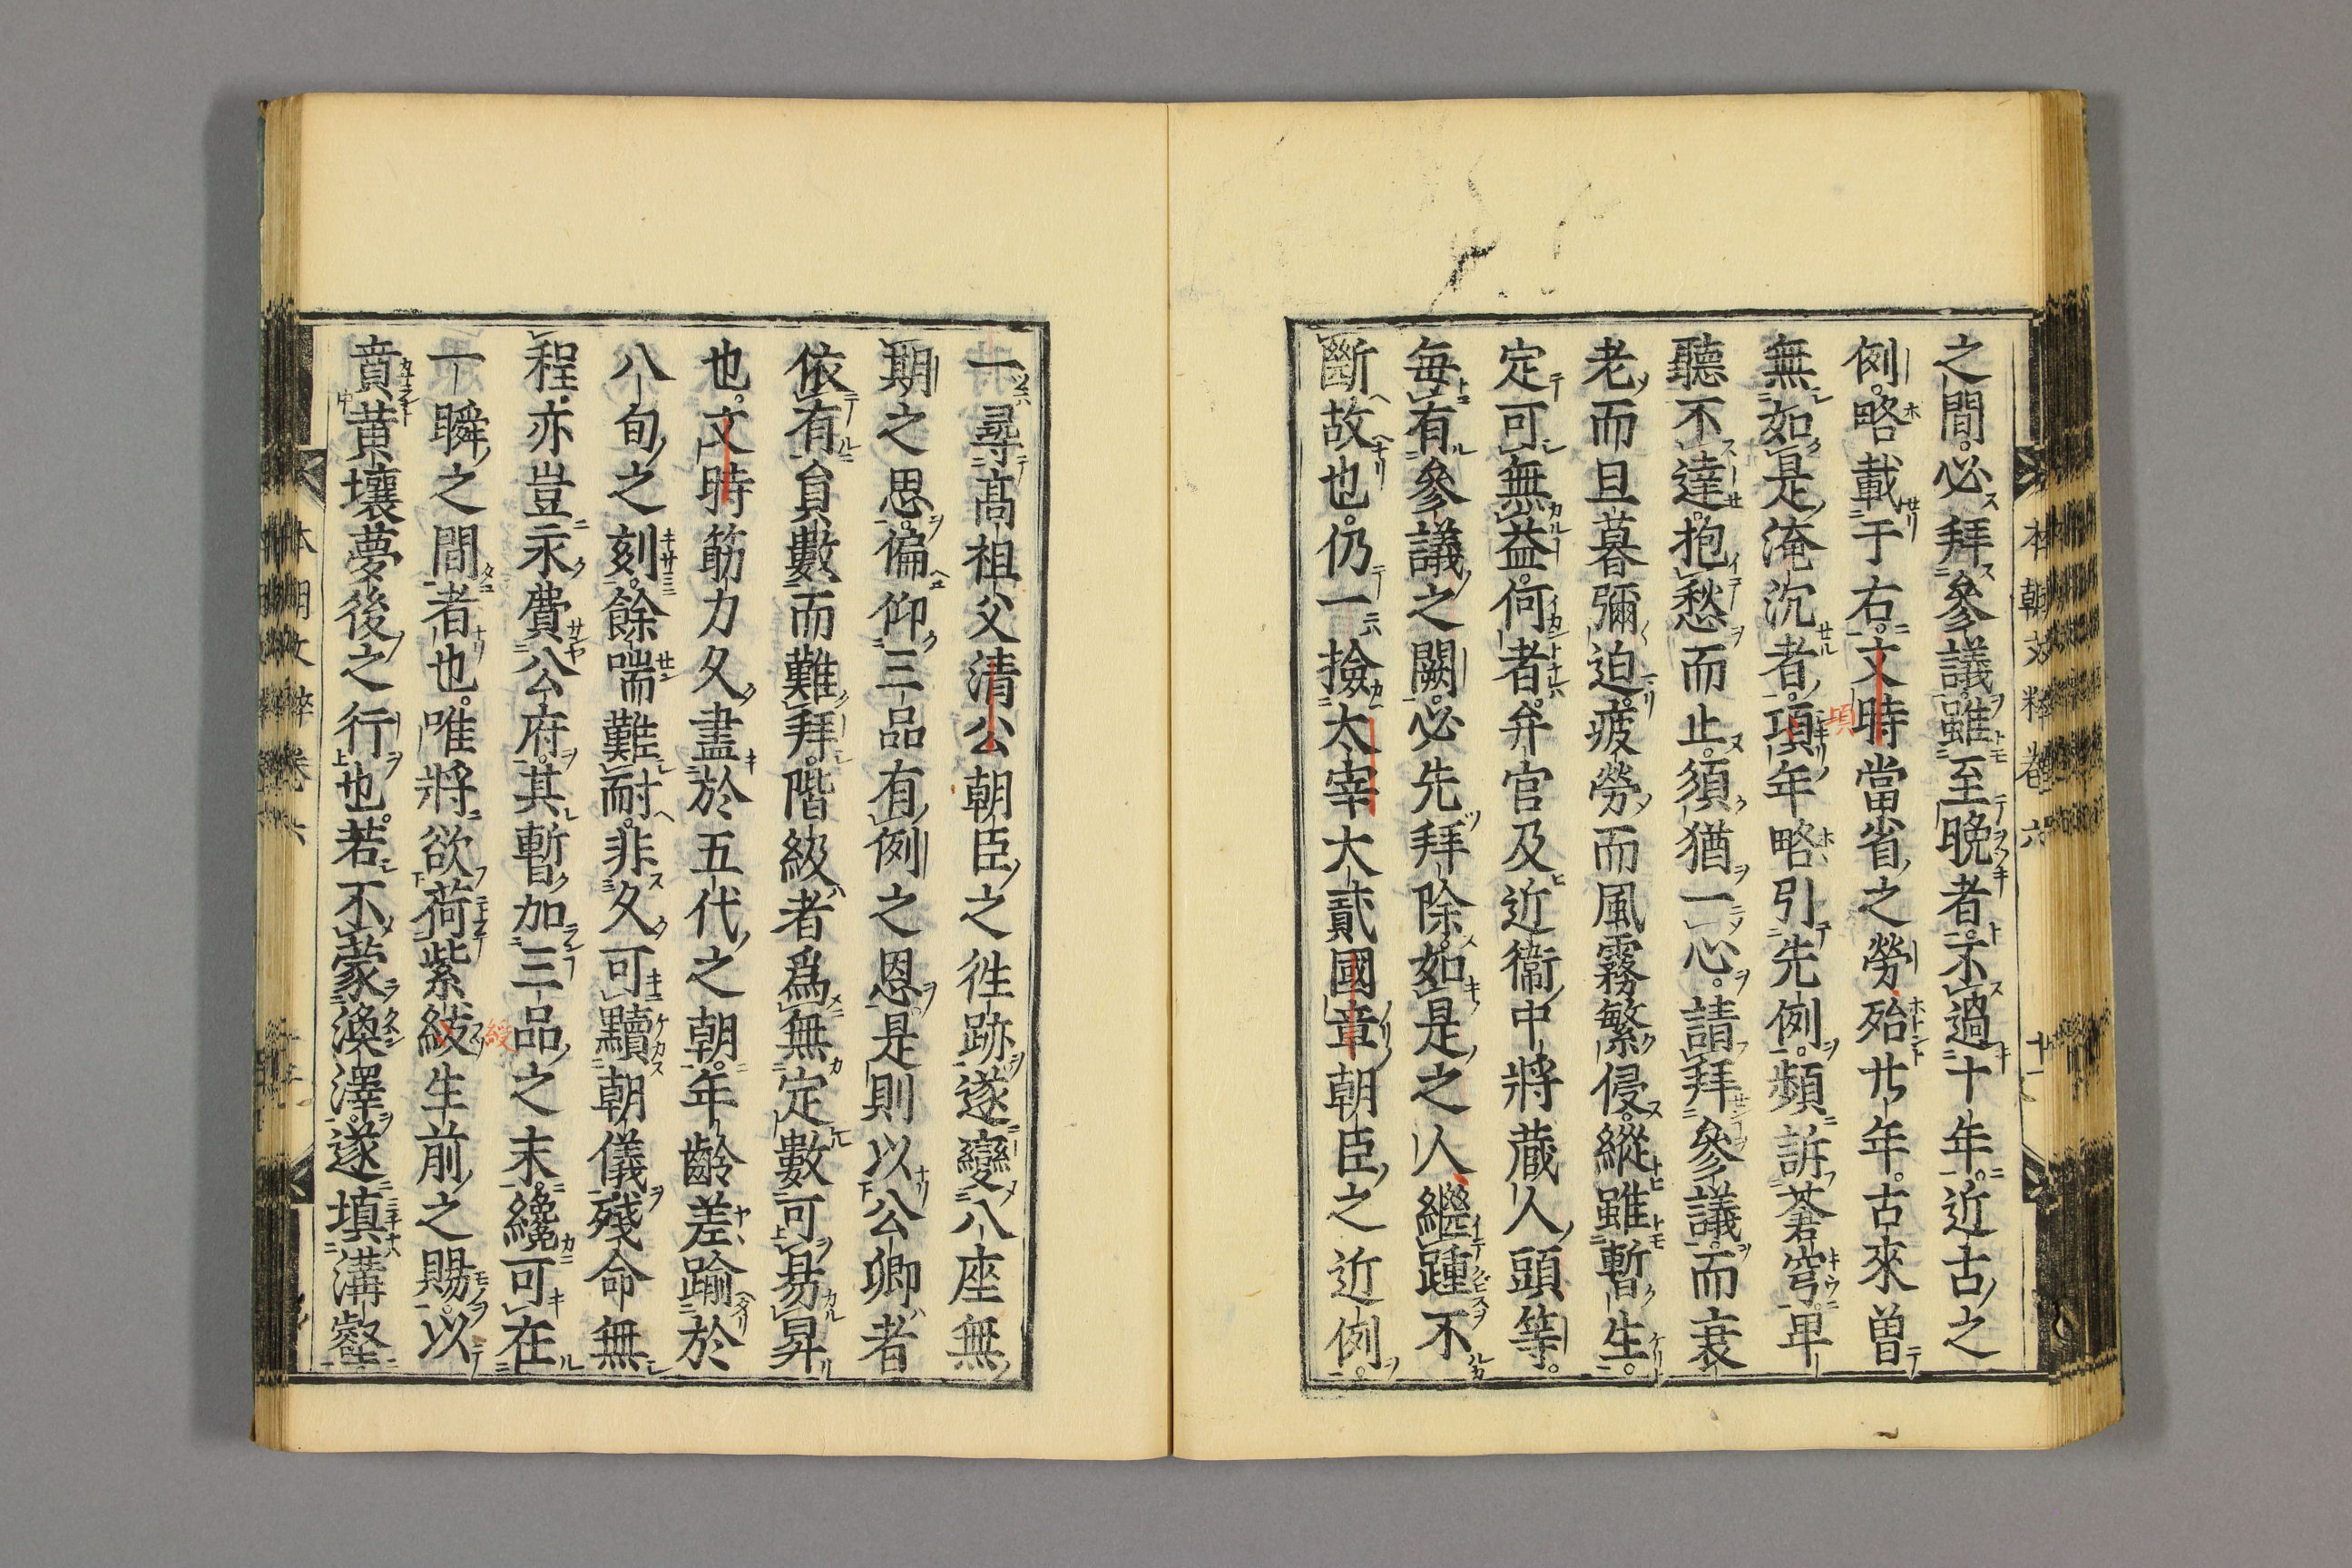 之間。必拜參議。雖至晩者。不過十年。近古之
例。略載于右。文時當省之勞。殆廿年。古來曾
無如是淹沉者。項年略引先例。頻訴蒼穹。卑
項
聽不達。抱愁而止。須猶一心。請拜參議。而衰
老而旦暮彌迫。疲勞而風霧繁侵。縱雖暫生。
定可無益。何者。弁官及近衞中將藏人頭等。
毎有參議之闕。必先拜除。如是之人。繼踵不
斷故也。仍一撿大宰大貳國章朝臣之近例。
一尋髙祖父清公朝臣之徃跡。遂變八座無
期之思。偏仰三品有例之恩。是則以公卿者
依有員數而難拜。階級者爲無定數可易昇
也。文時筋力久盡於五代之朝。年齡差踰於
八旬之刻。餘喘難耐。非久可黷朝儀。殘命無
程。亦豈永費公府。其暫加三品之末。纔可在
一瞬之間者也。唯將欲荷紫綬生前之賜。以
綬
賁黄壤夢後之行也。若不蒙渙澤。遂填溝壑
本朝文粹卷六
本朝文粹卷六